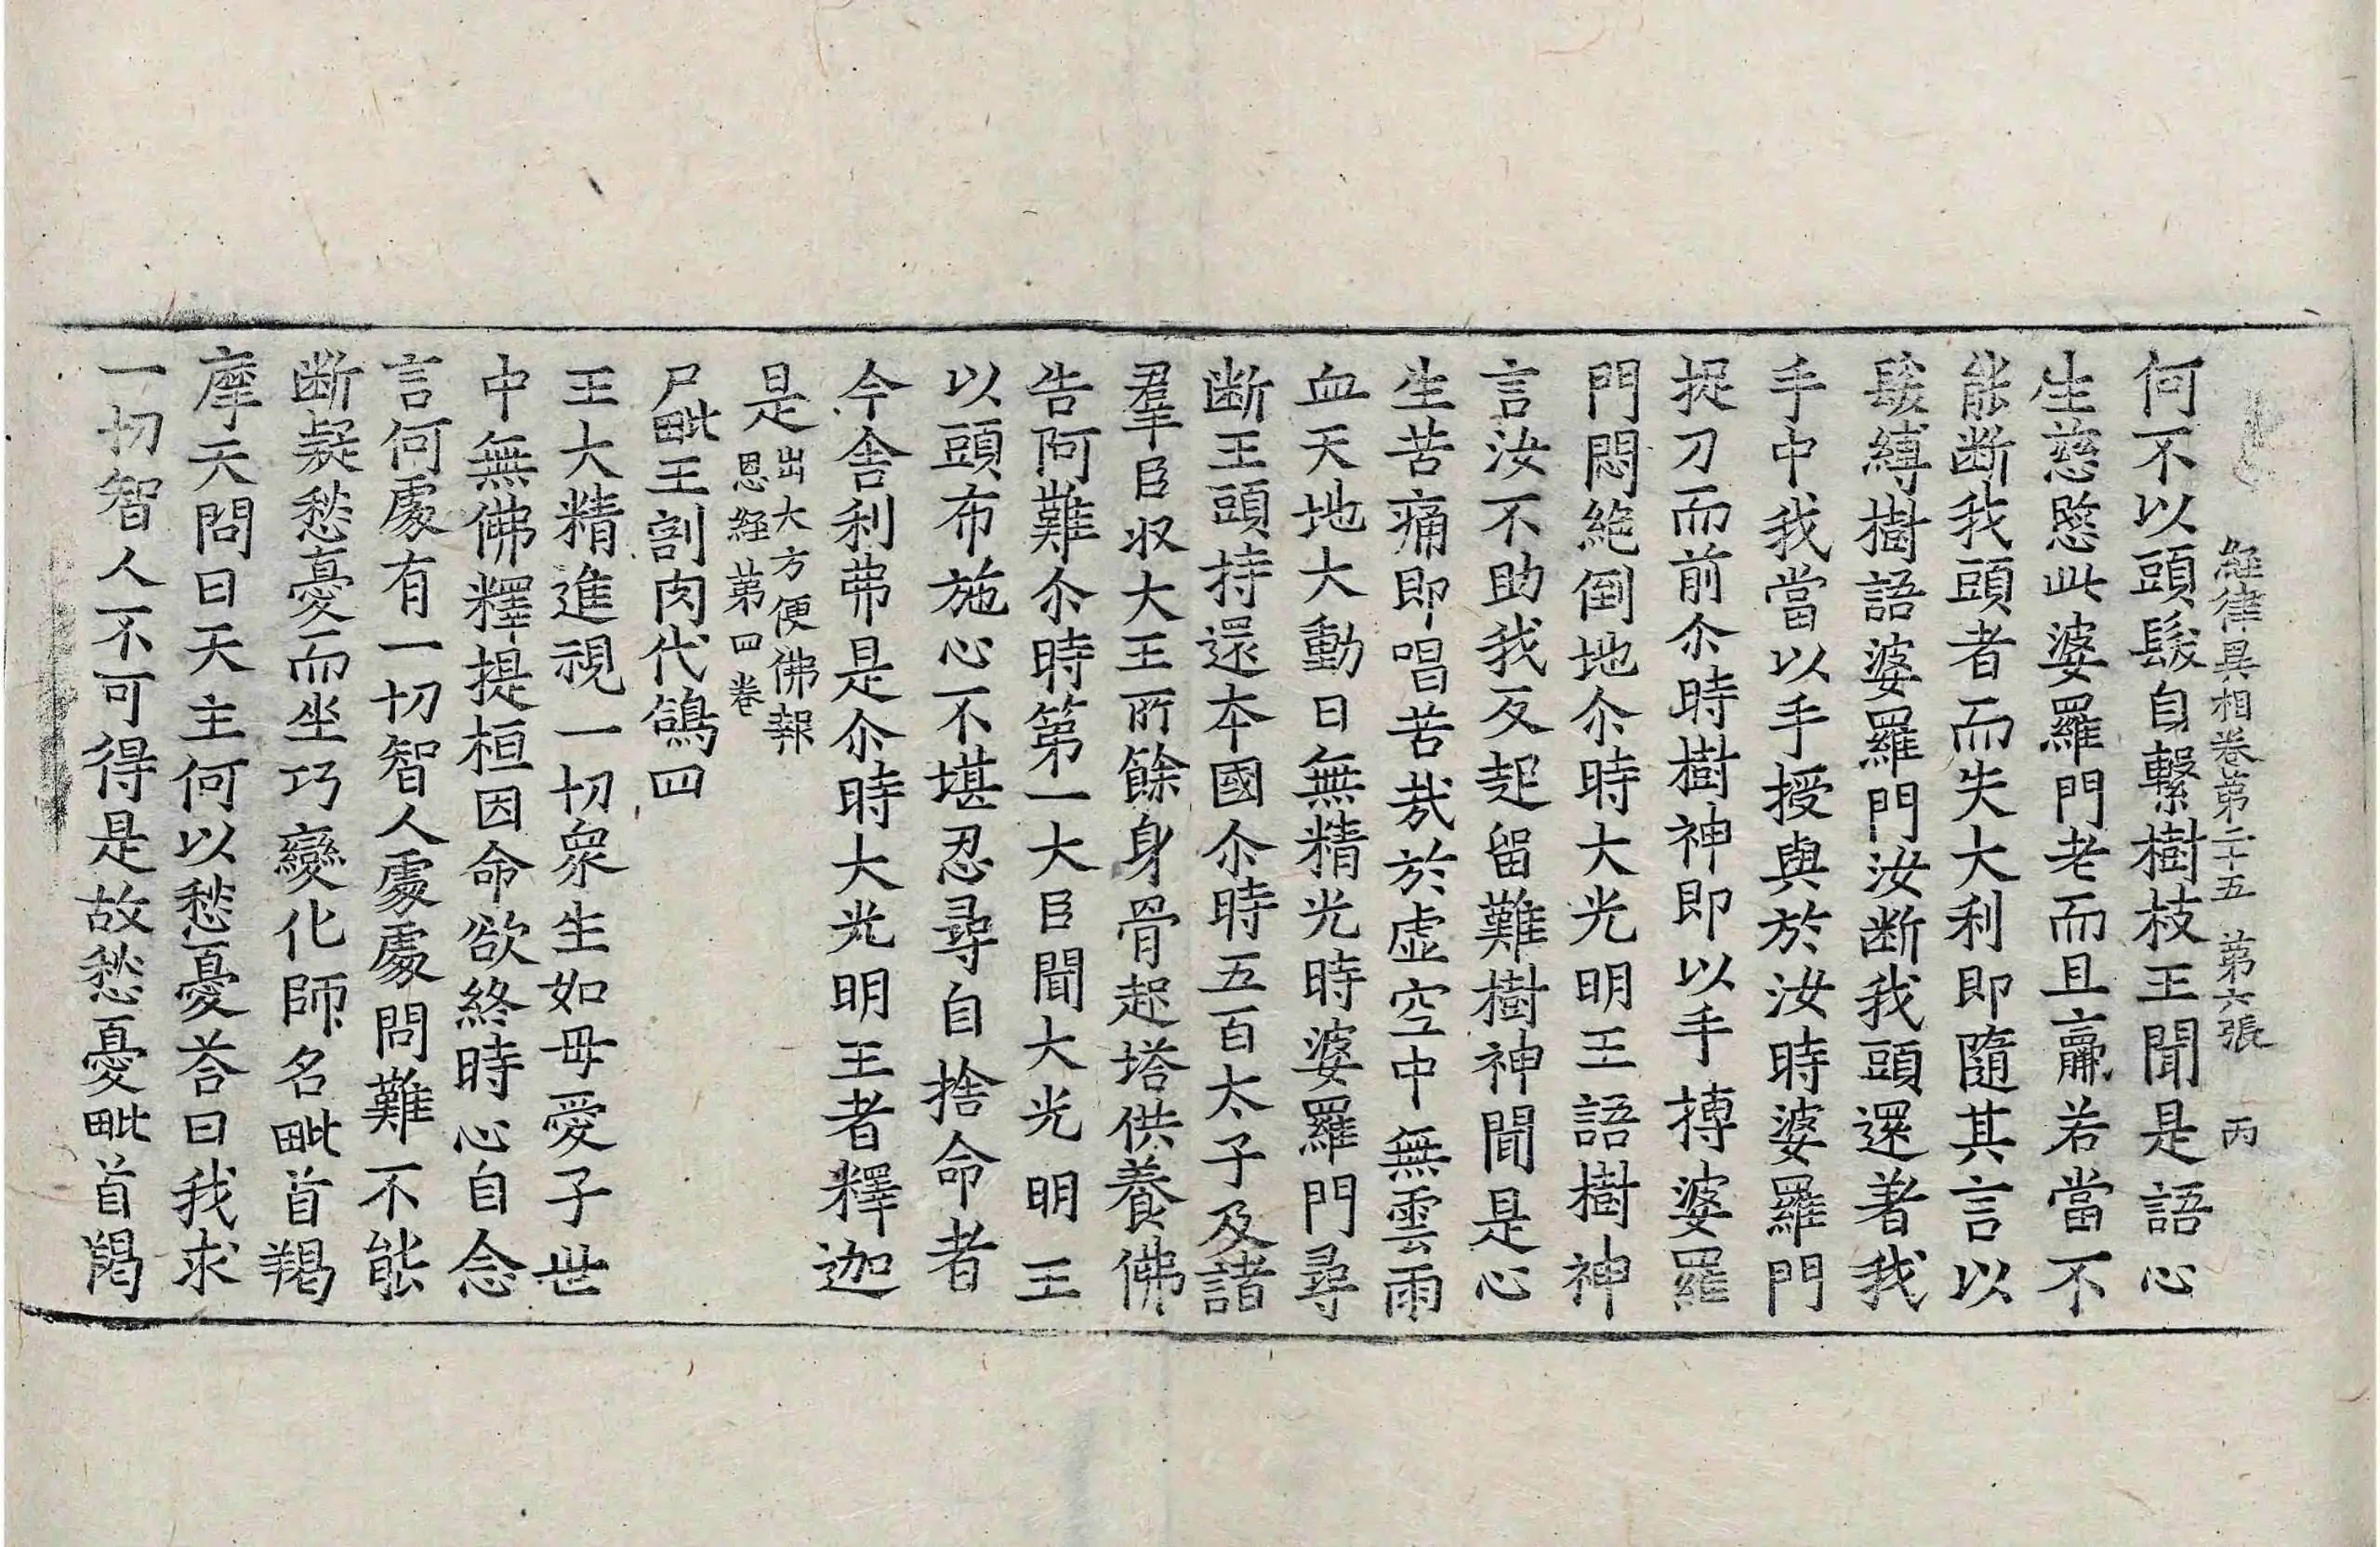 經律異相卷第二十五　第六張　丙
何不以頭髮自繫樹枝王聞是語心
生慈愍此婆羅門老而且羸若當不
能断我頭者而失大利即隨其言以
髮縛樹語婆羅門汝断我頭還著我
手中我當以手授與於汝時婆羅門
捉刀而前尒時樹神即以手摶婆羅
門悶絶倒地尒時大光明王語樹神
言汝不助我反起留難樹神聞是心
生苦痛即唱苦哉於虚空中無雲雨
血天地大動日無精光時婆羅門尋
断王頭持還本國尒時五百太子及諸
羣臣収大王所餘身骨起塔供養佛
告阿難尒時第一大臣聞大光明王
以頭布施心不堪忍尋自捨命者
今舎利弗是尒時大光明王者釋迦
是出大方便佛報
恩経第四卷
尸毗王割肉代鴿四
王大精進視一切衆生如母愛子世
中無佛釋提桓因命欲終時心自念
言何處有一切智人處處問難不能
断疑愁憂而坐巧變化師名毗首羯
摩天問曰天主何以愁憂荅曰我求
一切智人不可得是故愁憂毗首羯